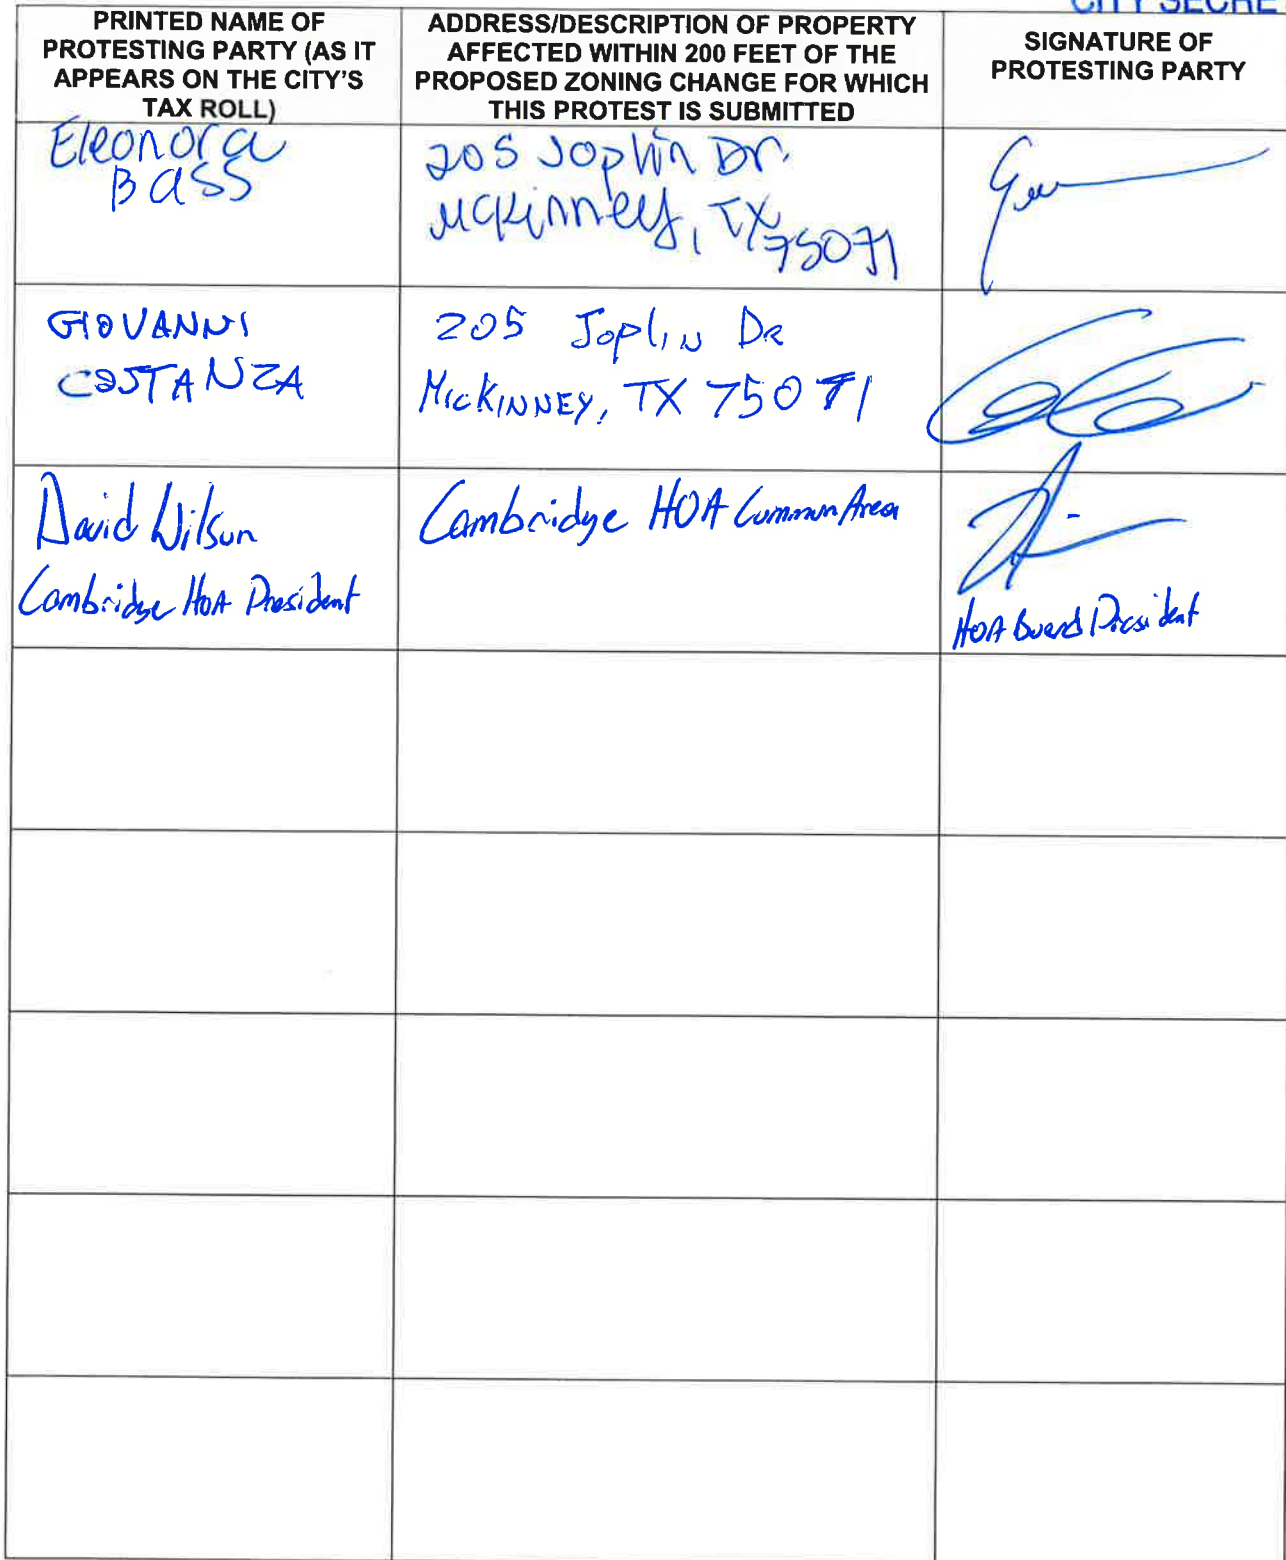 CITY SECRE
PRINTED NAME OF
PROTESTING PARTY (AS IT
APPEARS ON THE CITY'S
TAX ROLL)
ADDRESS/DESCRIPTION OF PROPERTY
AFFECTED WITHIN 200 FEET OF THE
PROPOSED ZONING CHANGE FOR WHICH
THIS PROTEST IS SUBMITTED
SIGNATURE OF
PROTESTING PARTY
Eleonora
Bass
205 Joplin Dr.
McKinney, TX
75071
GIOVANNI
COSTANZA
205 Joplin DR
McKINNEY, TX 75071
David Wilson
Cambridge HOA President
Cambridge HOA Common Area
HOA Board President